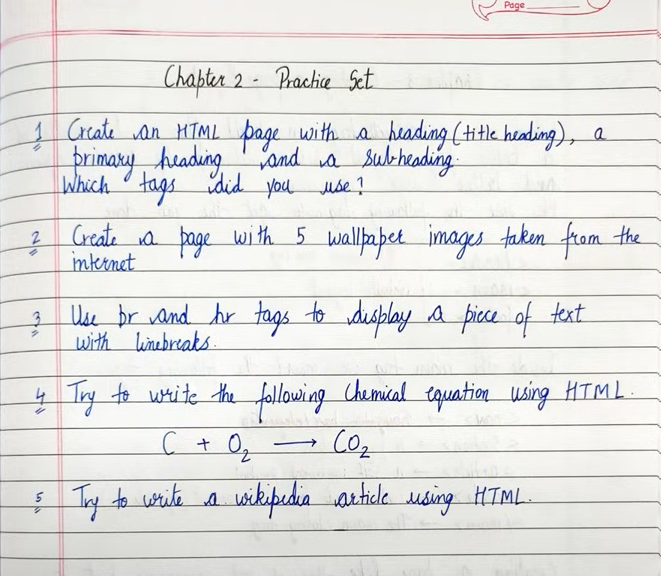 Page
Chapter 2 - Practice Set
1 Create an HTML page with a heading (title heading), a
primary heading and a subheading.
Which tags did you use?
2 Create a page with 5 wallpaper images taken from the
internet
3 Use br and hr tags to display a piece of text
with linebreaks.
4 Try to write the following Chemical equation using HTML.
C + O₂ ⟶ CO₂
5 Try to write a wikipedia article using HTML.